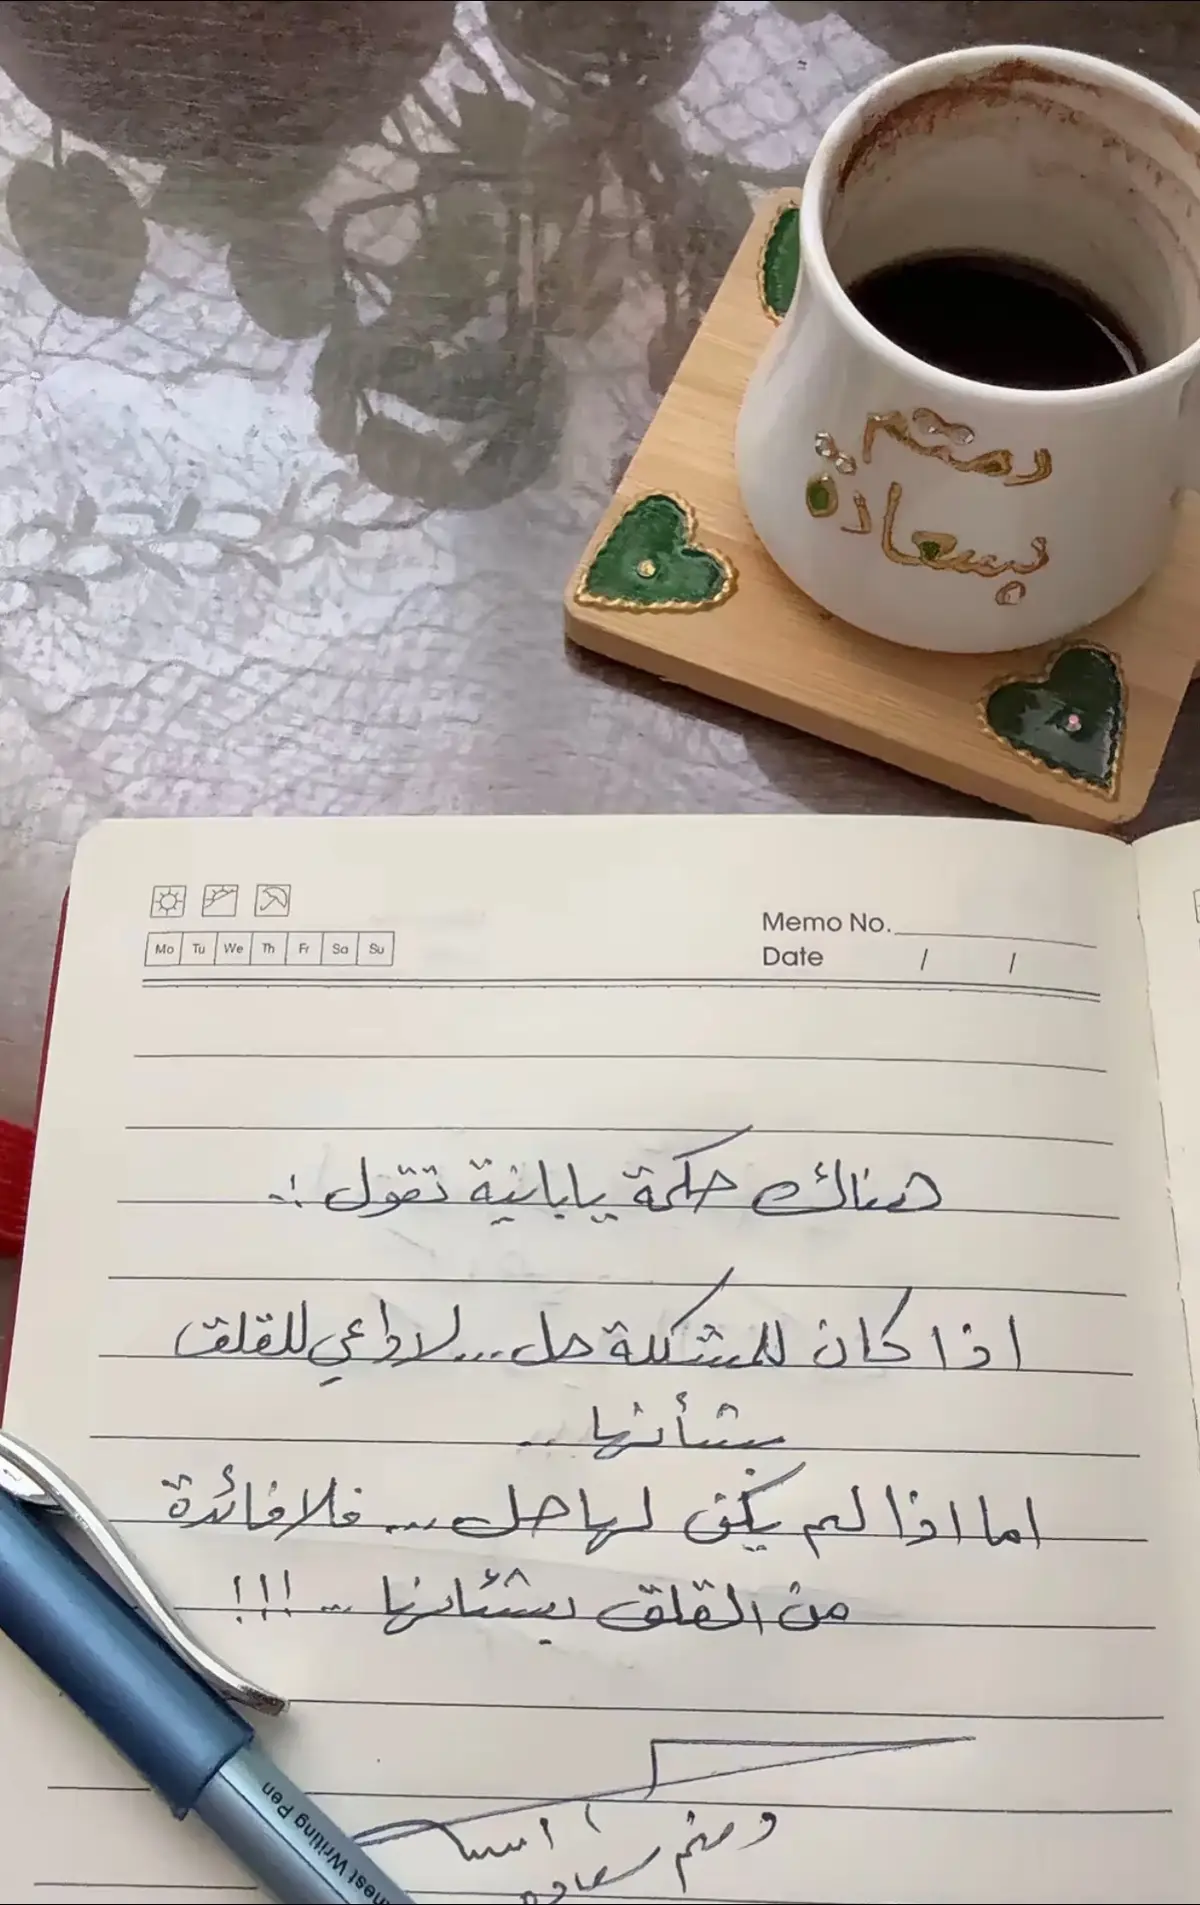 دمتم
بسعادة
Mo Tu We Th Fr Sa Su
Memo No.
Date / /
هناك حكمة يابانية تقول :-
اذا كان للمشكلة حل... لا داعي للقلق
بشأنها ..
اما اذا لم يكن لها حل ... فلا فائدة
من القلق بشئانها .. !!!
ودمتم
سعاده
Writing Pen